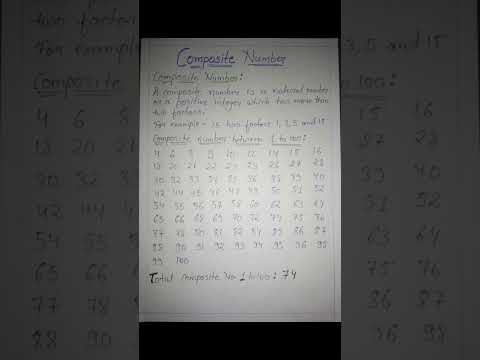 Composite Number
Composite Number:
A composite number is a natural number
or a positive integer which has more than
two factors.
For example - 15 has factors 1, 3, 5 and 15
Composite number between 1 to 100:
4 6 8 9 10 12 14 15 16
18 20 21 22 24 25 26 27 28
30 32 33 34 35 36 38 39 40
42 44 45 46 48 49 50 51 52
54 55 56 57 58 60 62 63 64
65 66 68 69 70 72 74 75 76
77 78 80 81 82 84 85 86 87
88 90 91 92 93 94 95 96 98
99 100
Total composite No 1 to 100: 74